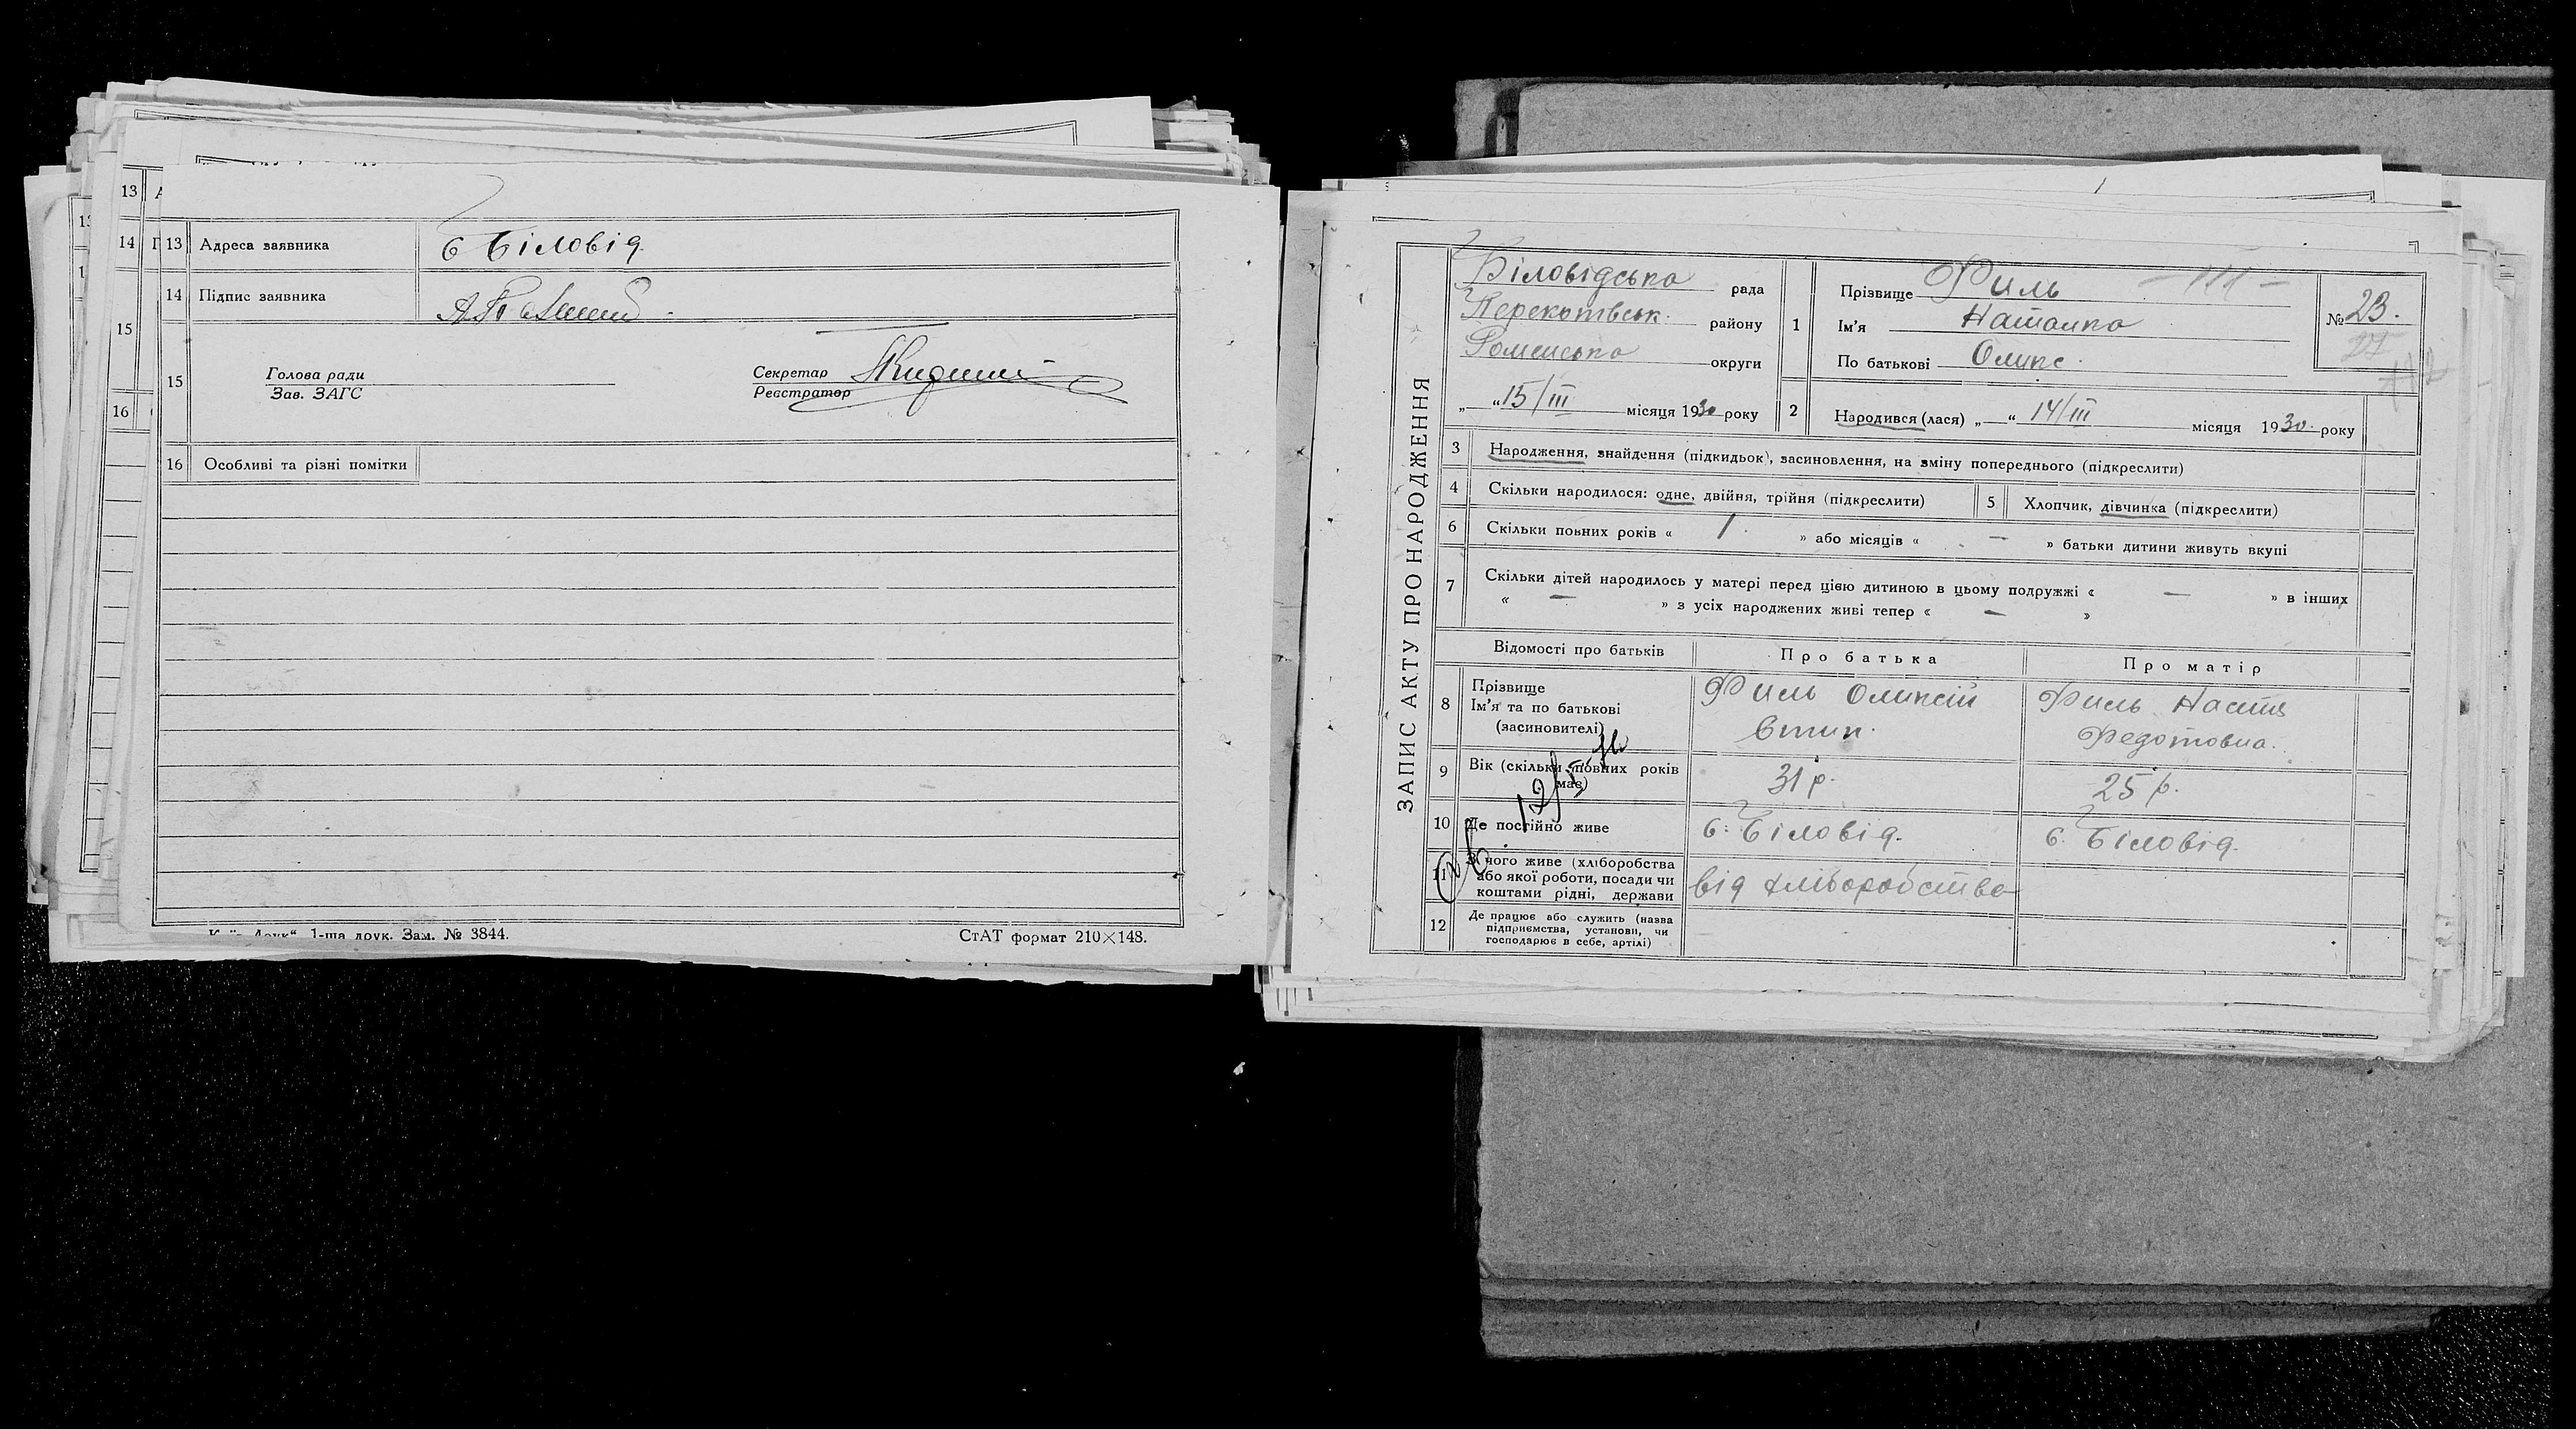 13 Адреса заявника с Біловід.
14 Підпис заявника
15 Голова ради
Зав. ЗАГС
Секретар
Реєстратор
16 Особливі та різні помітки
1-ша друк. Зам. № 3844.
СтАТ формат 210×148.
ЗАПИС АКТУ ПРО НАРОДЖЕННЯ
Біловідська рада
району
Роменська округи
„ “ 15/III місяця 1930 року
1 Прізвище Филь
Ім'я Наталка
По батькові Оликс.
№ 23.
2 Народився (лася) „ “ 14/III місяця 1930. року
3 Народження, знайдення (підкидьок), засиновлення, на зміну попереднього (підкреслити)
4 Скільки народилося: одне, двійня, трійня (підкреслити)
5 Хлопчик, дівчинка (підкреслити)
6 Скільки повних років « 1. » або місяців « — » батьки дитини живуть вкупі
7 Скільки дітей народилось у матері перед цією дитиною в цьому подружжі « — » в інших
« — » з усіх народжених живі тепер « — »
Відомості про батьків
Про батька
Про матір
8 Прізвище
Ім'я та по батькові
(засиновителі)
Филь Оликсій
Филь Настя
Федотовна.
9 Вік (скільки повних років
має)
31 р.
25 р.
10 Де постійно живе
с. Біловід.
с. Біловід.
11 З чого живе (хліборобства
або якої роботи, посади чи
коштами рідні, держави
від хліборобства
12 Де працює або служить (назва
підприємства, установи, чи
господарює в себе, артілі)